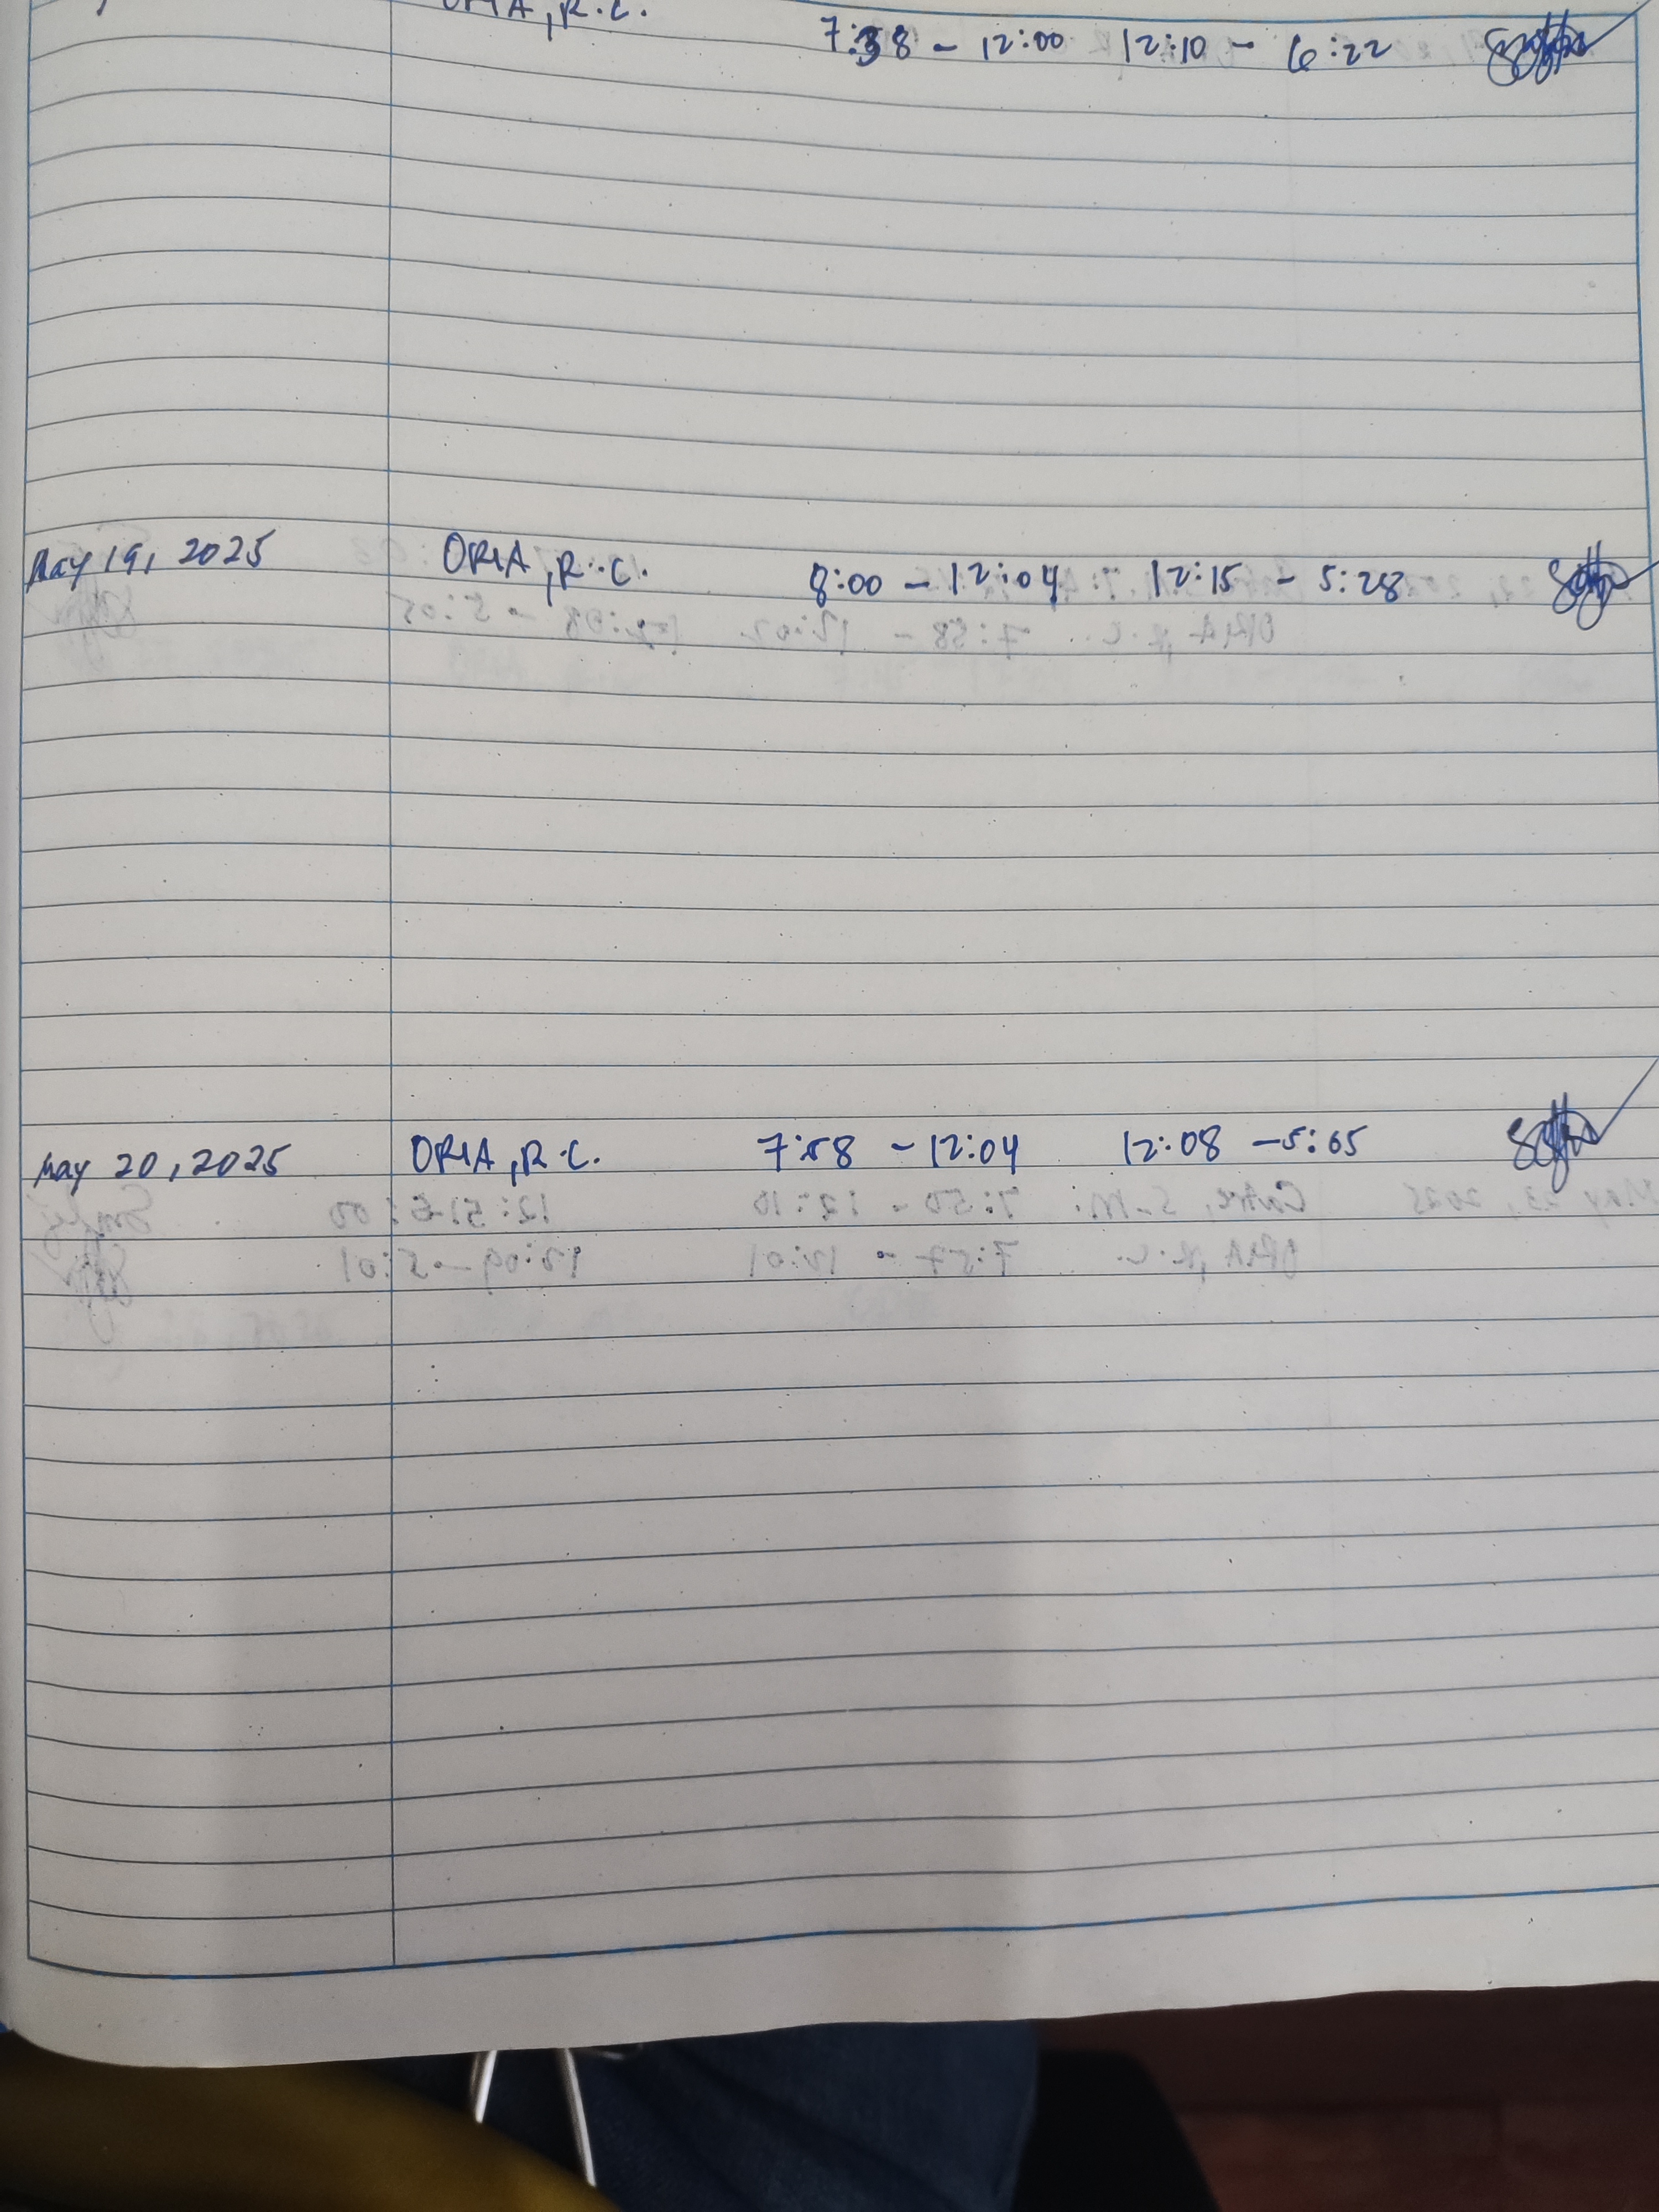 ORIA, R.C. 7:38 - 12:00 12:10 - 6:22
May 19, 2025 ORIA, R.C. 8:00 - 12:04 12:15 - 5:28
May 20, 2025 ORIA, R.C. 7:58 - 12:04 12:08 - 5:05